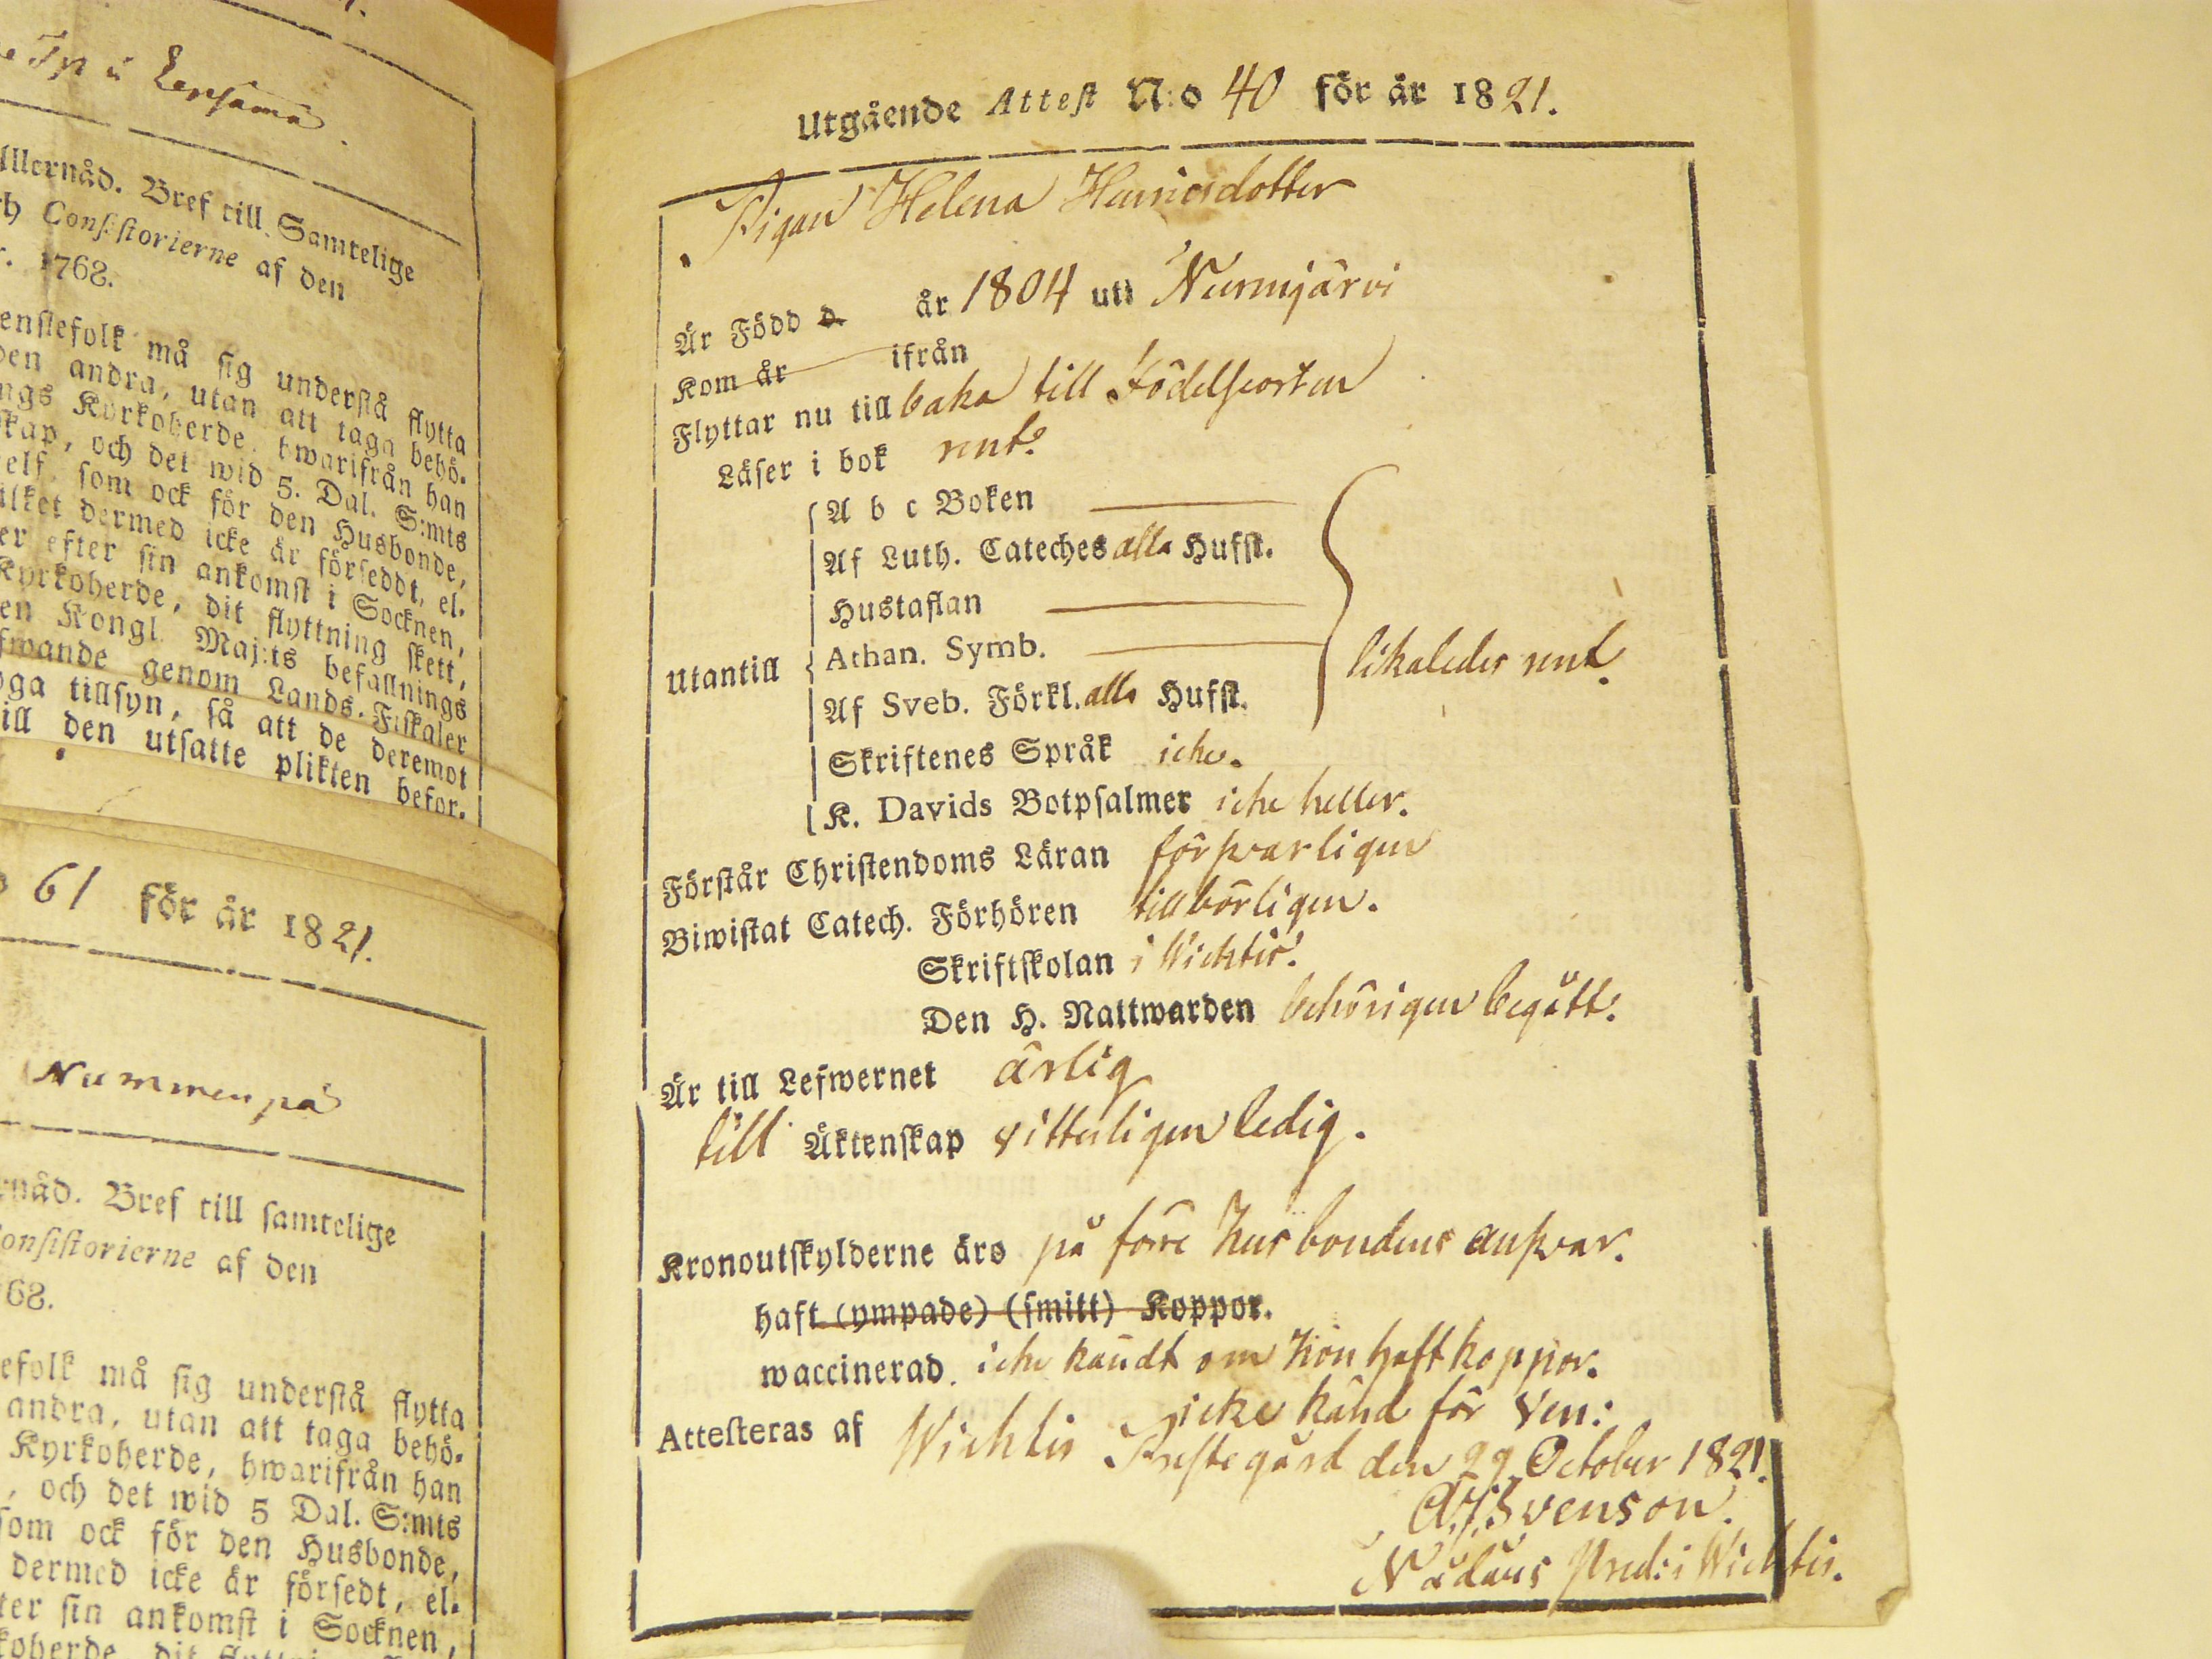 Typ i Lensämä.
Allernåd. Bref till Samtelige
Consistorierne af den
1768.
må sig understå flytta
den andra, utan att taga behö-
Kyrkoherde, hwarifrån han
skap, och det wid 5. Dal. S:mts
som ock för den Husbonde,
hwilket dermed icke är förseddt, el-
efter sin ankomst i Socknen,
Kyrkoherde, dit flyttning skett,
Kongl. Maj:ts befallnings
genom Lands-Fiskaler
noga tillsyn, så att de deremot
till den utsatte plikten befor-
61 för år 1821.
Nummenpä
Bref till samtelige
Consistorierne af den
68.
må sig understå flytta
andra, utan att taga behö-
Kyrkoherde, hwarifrån han
, och det wid 5 Dal. S:mts
som ock för den Husbonde,
dermed icke är försedt, el-
sin ankomst i Socknen,
Utgående Attest N:o 40 för år 1821.
Pigan Helena Henricsdotter
Är Född d. år 1804 uti Nurmijärvi
Kom år ifrån
Flyttar nu tillbaka till Födelseorten
Läser i bok rent.
A b c Boken
Af Luth. Cateches alla Hufst.
Hustaflan
Utantill Athan. Symb. likaledes rent.
Af Sveb. Förkl. alla Hufst.
Skriftenes Språk icke.
K. Davids Botpsalmer icke heller.
Förstår Christendoms Läran försvarligen
Biwistat Catech. Förhören tillbörligen.
Skriftskolan i Wichtis.
Den H. Nattwarden behörigen begått.
Är till Lefwernet ärlig
till Äktenskap vitterligen ledig.
Kronoutskylderne äro på förre husbondens ansvar.
haft (ympade) (smitt) Koppor.
waccinerad. icke kändt om hon haft koppor.
icke känd för Ven:
Attesteras af Wichtis Prestegård den 29 October 1821.
Svenson.
Nådårs Pred: i Wichtis.